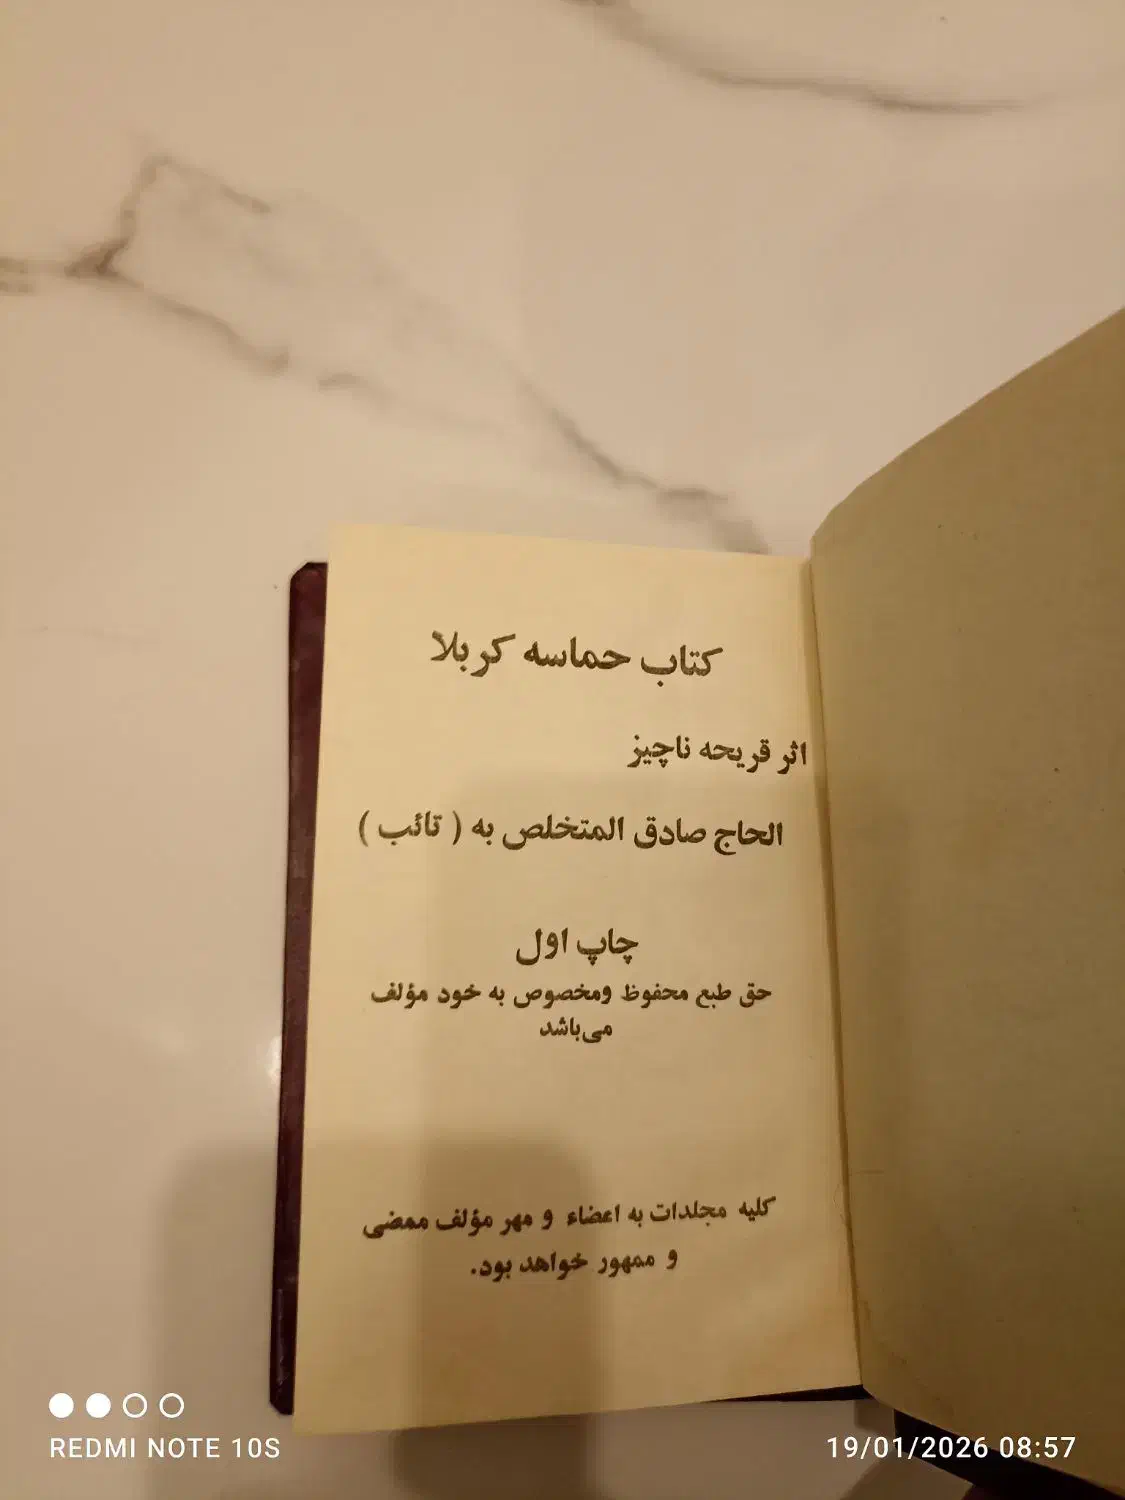 کتاب حماسه کربلا
اثر قریحه ناچیز
الحاج صادق المتخلص به ( تائب )
چاپ اول
حق طبع محفوظ ومخصوص به خود مؤلف
می‌باشد
کلیه مجلدات به اعضاء و مهر مؤلف ممضی
و ممهور خواهد بود.
REDMI NOTE 10S
19/01/2026 08:57